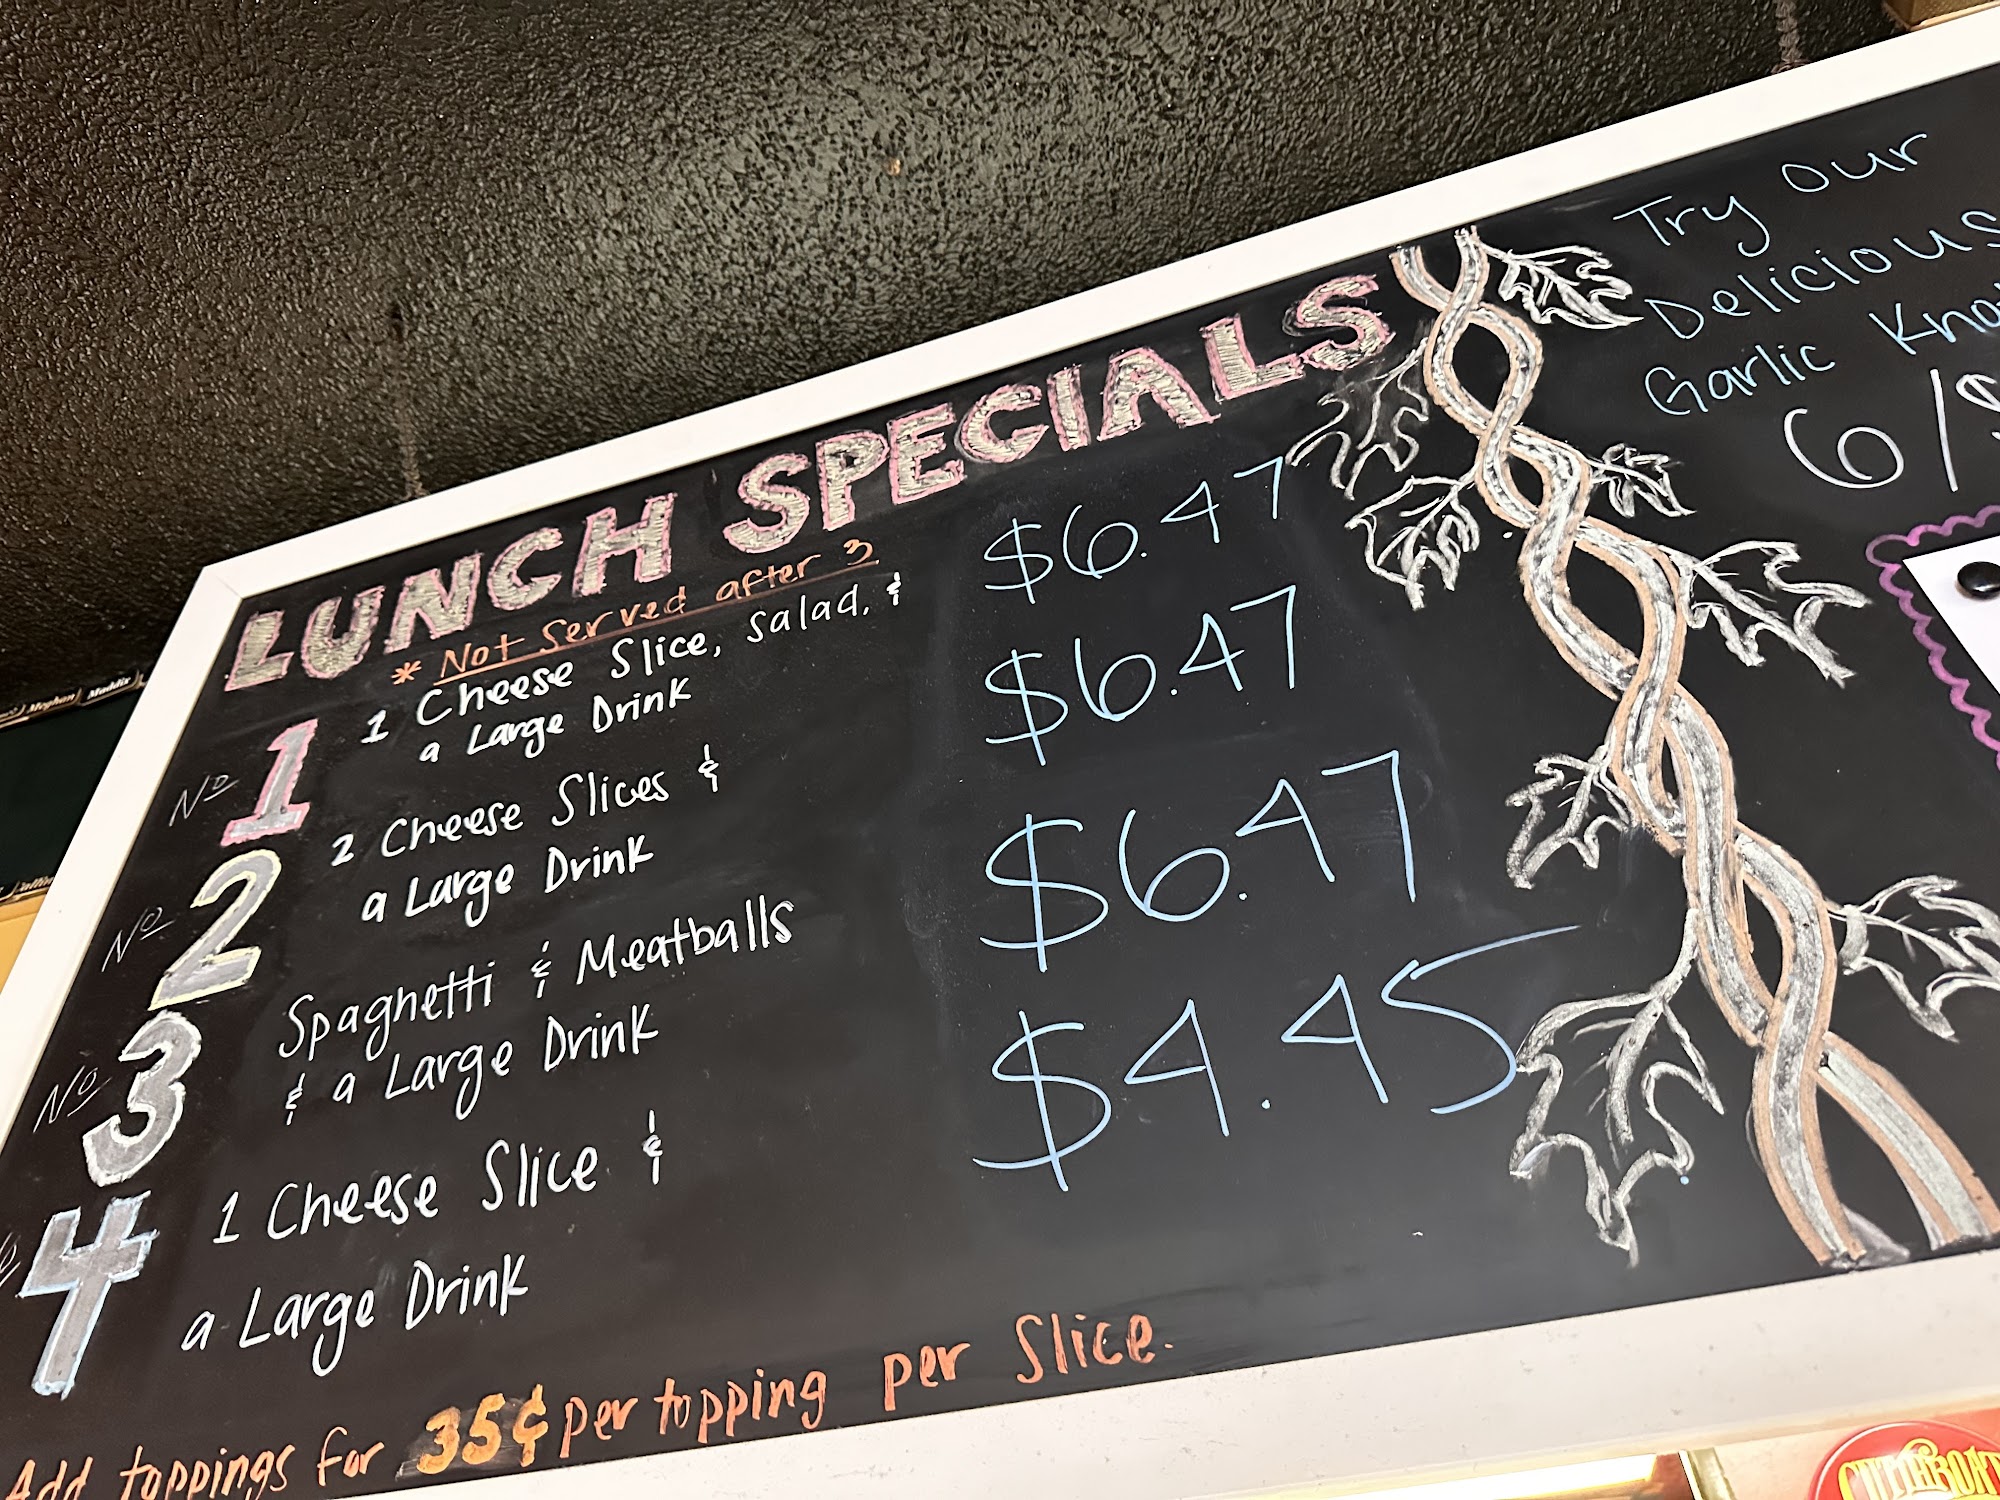 LUNCH SPECIALS
* Not Served after 3
No 1
1 Cheese Slice, salad, &
a Large Drink
$6.47
No 2
2 Cheese Slices &
a Large Drink
$6.47
No 3
Spaghetti & Meatballs
& a Large Drink
$6.47
4
1 Cheese Slice &
a Large Drink
$4.45
Add toppings for 35¢ per topping per Slice.
Try our
Delicious
Garlic
6/$
Meghan
Maddix